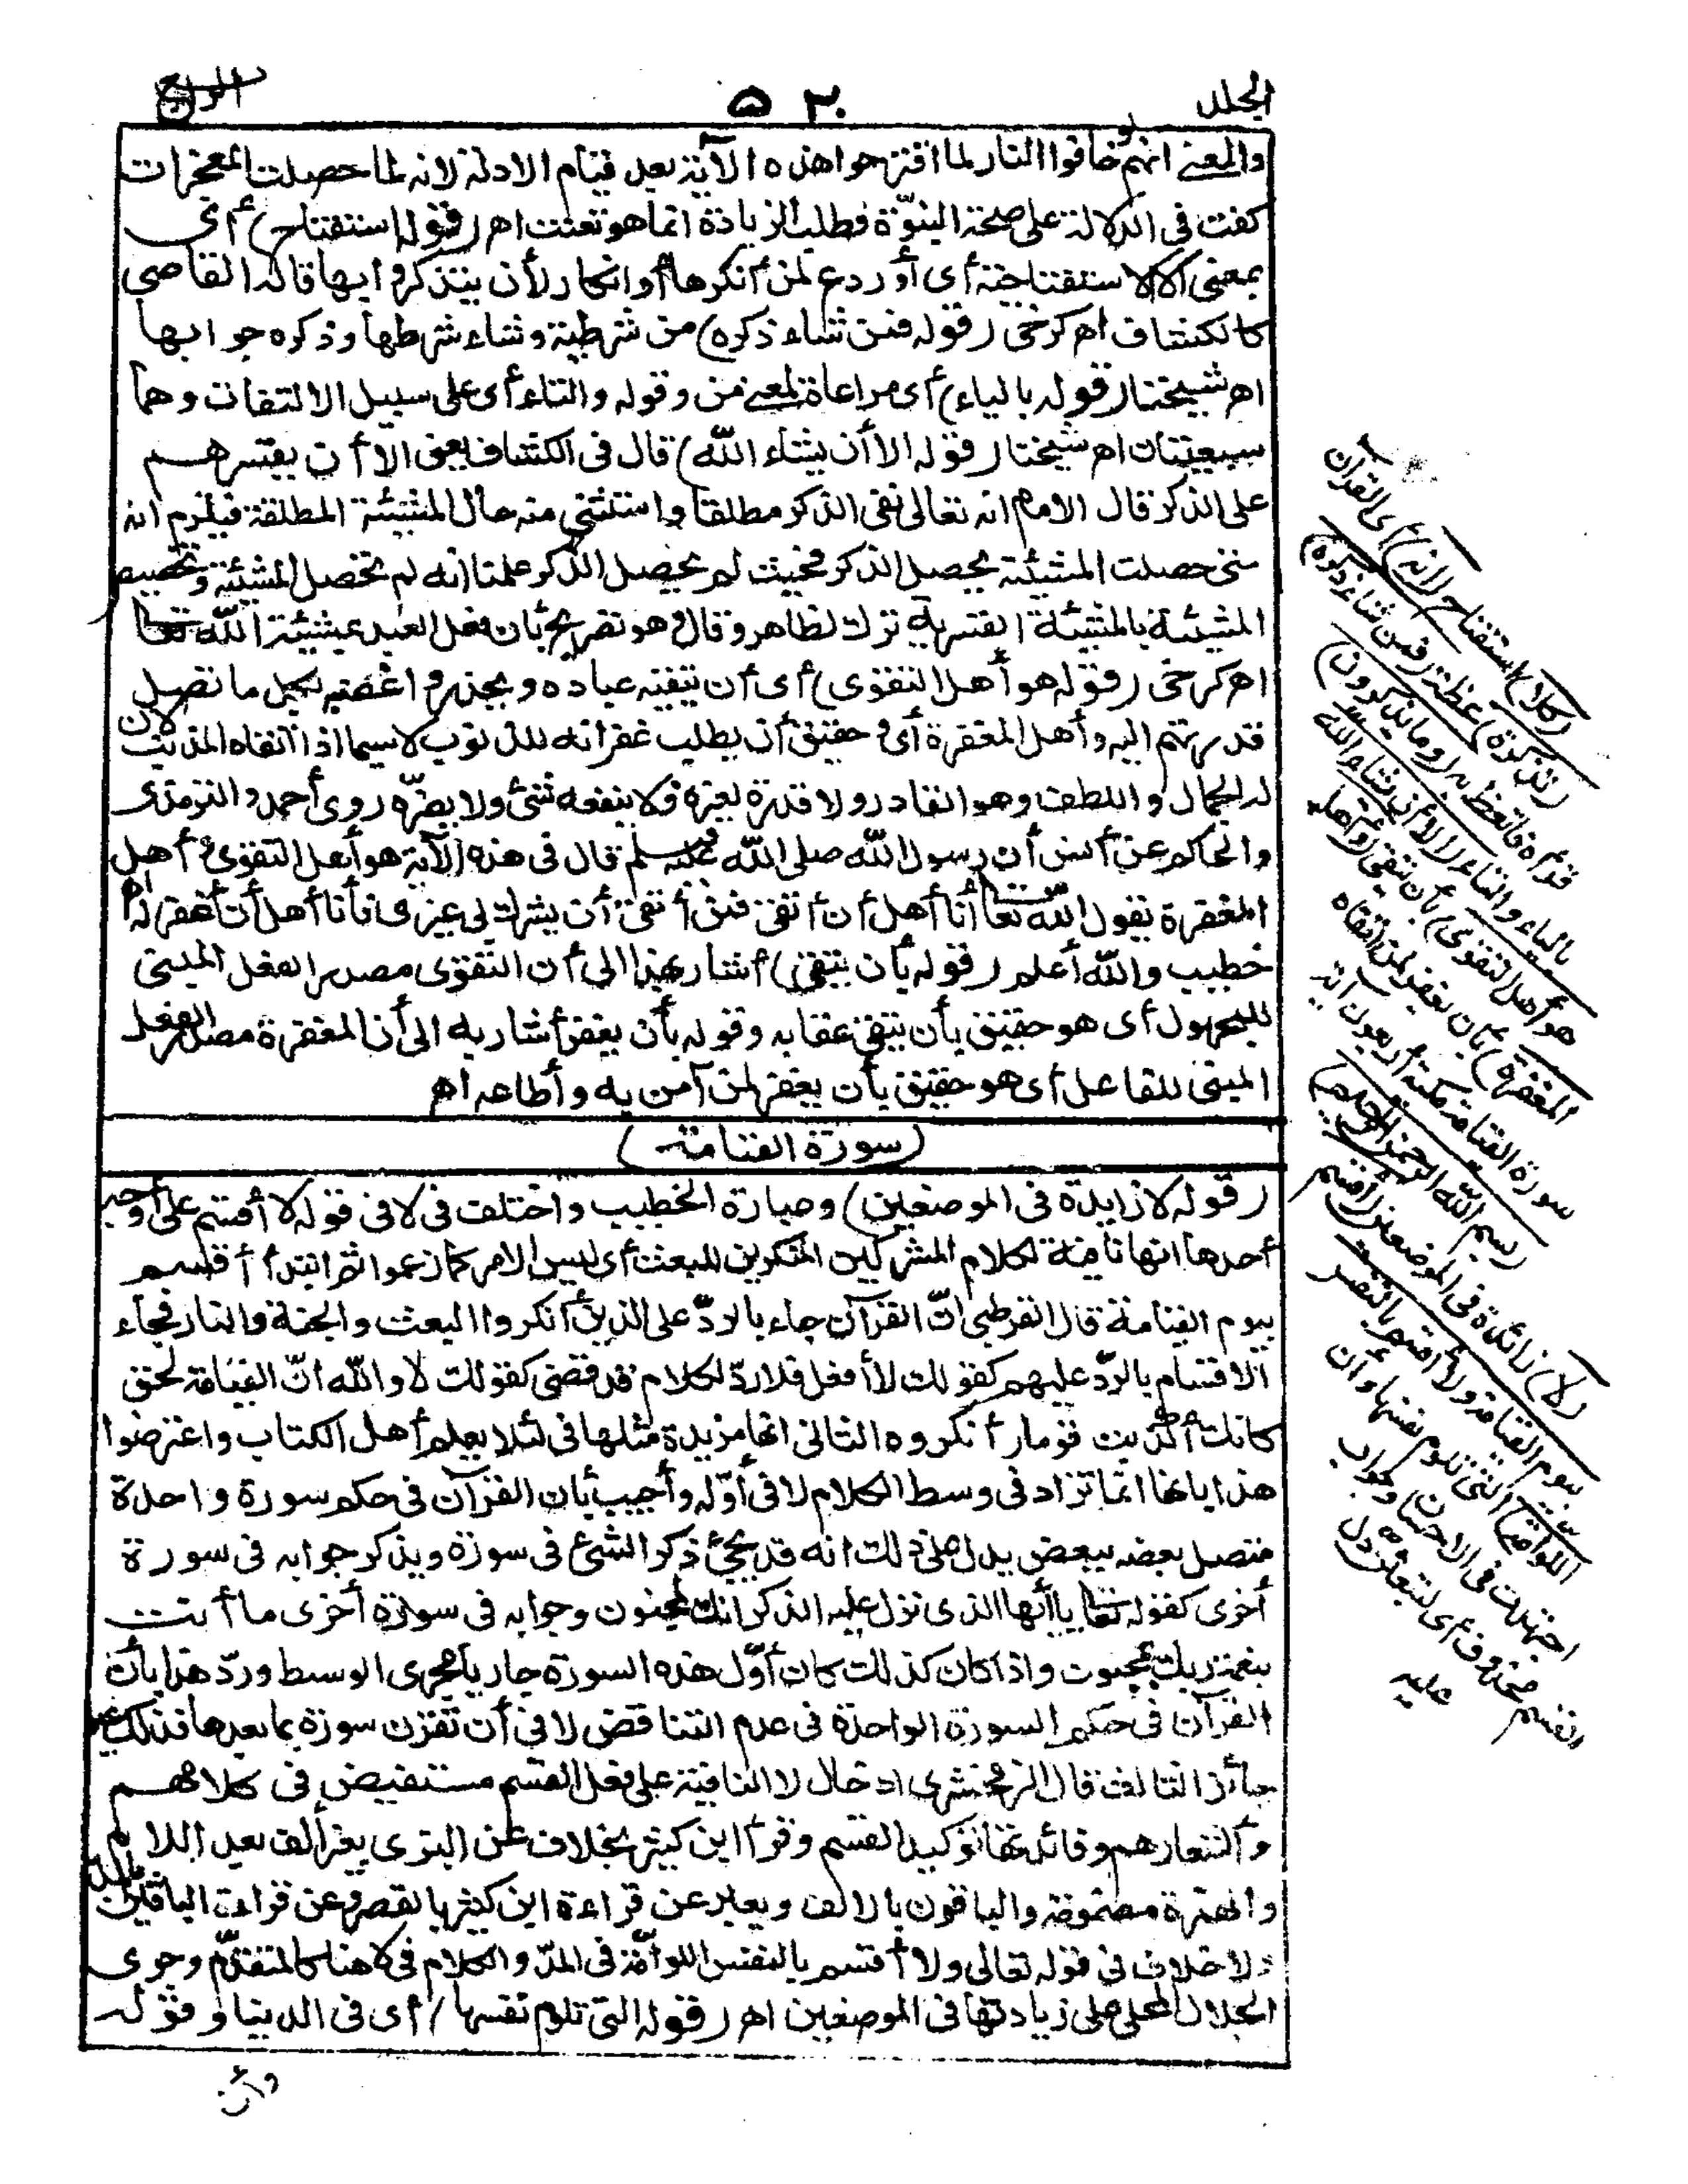 الجلد
٥٢٠
الرابع
والمعنى انهم لو خافوا النار لما اقترحوا هذه الآية بعد قيام الادلة لانه لما حصلت المعجزات
كفت في الدلالة على صحة النبوّة فطلب الزيادة انما هو تعنت اهـ (قوله استفتاح) أى
بمعنى ألا الاستفتاحية أى أو ردع لمن أنكرها أو انكار لأن يتذكروا بها قاله القاضى
كالكشاف اهـ كرخى (قوله فمن شاء ذكره) من شرطية وشاء شرطها وذكره جوابها
اهـ شيخنا (قوله بالياء) أى مراعاة لمعنى من وقوله والتاء أى على سبيل الالتفات وهما
سبعيتان اهـ شيخنا (قوله الا أن يشاء الله) قال فى الكشاف يعنى الا أن يقسرهم
على الذكر قال الامام انه تعالى نفى الذكر مطلقا واستثنى منه حال المشيئة المطلقة فيلزم انه
متى حصلت المشيئة يحصل الذكر فحيث لم يحصل الذكر علمنا انه لم تحصل المشيئة وتخصيص
المشيئة بالمشيئة القسرية ترك لظاهر وقال وهو تصريح بأن فعل العبد بمشيئة الله تعالى
اهـ كرخى (قوله هو أهل التقوى) أى أن يتقيه عباده ويحذروا غضبه بكل ما تصل
قدرتهم اليه وأهل المغفرة أى حقيق أن يطلب غفرانه للذنوب لاسيما اذا اتقاه المذنب لان
له الجمال واللطف وهو القادر ولا قدرة لغيره فلا ينفعه شئ ولا يضرّه روى أحمد والترمذى
والحاكم عن أنس أن رسول الله صلى الله عليه وسلم قال فى هذه الآية هو أهل التقوى وأهل
المغفرة يقول الله تعالى أنا أهل أن أتقى فمن أتقى أن يشرك بى غيرى فأنا أهل أن أغفر له اهـ
خطيب والله أعلم (قوله بأن يتقى) أشار بهذا الى أن التقوى مصدر الفعل المبنى
للمجهول أى هو حقيق بأن يتقى عقابه وقوله بأن يغفر أشار به الى أن المغفرة مصدر الفعل
المبنى للفاعل أى هو حقيق بأن يغفر لمن آمن به وأطاعه اهـ
(سورة القيامة)
(قوله لا زايدة فى الموضعين) وعبارة الخطيب واختلف فى لا فى قوله لا أقسم على أوجه
أحدها انها نافية لكلام المشركين المنكرين للبعث أى ليس الامر كما زعموا ثم ابتدأ أقسم
بيوم القيامة قال القرطبى انّ القرآن جاء بالردّ على الذين أنكروا البعث والجنة والنار فجاء
الاقسام بالردّ عليهم كقولك لا أفعل فلا ردّ لكلام قد قضى كقولك لا والله انّ القيامة لحق
كانك أكذبت قوما أنكروه الثانى انها مزيدة مثلها فى لئلا يعلم أهل الكتاب واعترضوا
هذا بانها انما تزاد فى وسط الكلام لا فى أوّله وأجيب بأن القرآن فى حكم سورة واحدة
متصل بعضه ببعض يدل على ذلك انه قد يجئ ذكر الشئ فى سورة ويذكر جوابه فى سورة
أخرى كقوله تعالى يا أيها الذى نزل عليه الذكر انك لمجنون وجوابه فى سورة أخرى ما أنت
بنعمة ربك بمجنون واذا كان كذلك كان أوّل هذه السورة جاريا مجرى الوسط وردّ هذا بأن
القرآن فى حكم السورة الواحدة فى عدم التناقض لا فى أن تقرن سورة بما بعدها فذلك غير
جائز الثالث قال الزمخشرى ادخال لا النافية على فعل القسم مستفيض فى كلامهم
وأشعارهم وفائدتها توكيد القسم وقرأ ابن كثير بخلاف عن البزى بغير ألف بعد اللام
والهمزة مضمومة والباقون بالالف ويعبر عن قراءة ابن كثير بالقصر وعن قراءة الباقين بالمدّ
ولا خلاف فى قوله تعالى ولا أقسم بالنفس اللوامة فى المدّ والكلام فى لا هنا كالمتقدّم وجرى
الجلال المحلى على زيادتها فى الموضعين اهـ (قوله التى تلوم نفسها) أى فى الدنيا وقوله
وان
(كلا) استفتاح (انه) أى القرآن
(تذكرة) عظة (فمن شاء ذكره)
قرأه فاتعظ به (وما يذكرون)
بالياء والتاء (الا أن يشاء الله
هو أهل التقوى) بأن يتقى (وأهل
المغفرة) بأن يغفر لمن اتقاه
سورة القيامة مكية أربعون آية
(بسم الله الرحمن الرحيم)
(لا) زائدة فى الموضعين (أقسم
بيوم القيامة ولا أقسم بالنفس
اللوامة) التى تلوم نفسها وان
اجتهدت فى الاحسان وجواب
القسم محذوف أى لتبعثن دل
عليه